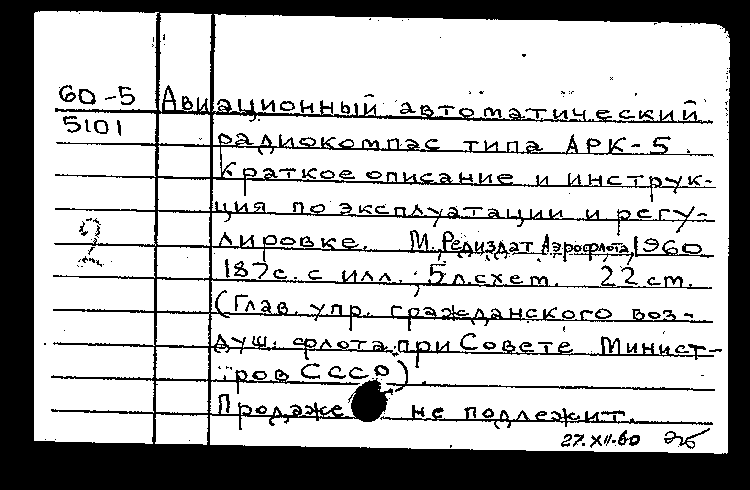 60-5 Авиационный автоматический
5101 радиокомпас типа АРК-5.
Краткое описание и инструк-
ция по эксплуатации и регу-
2 лировке. М., Редиздат Аэрофлота, 1960
187с. с илл.; 5 л.схем. 22 см.
(Глав. упр. гражданского воз-
душ. флота при Совете Минист-
ров СССР).
Продаже не подлежит.
27.XII-60